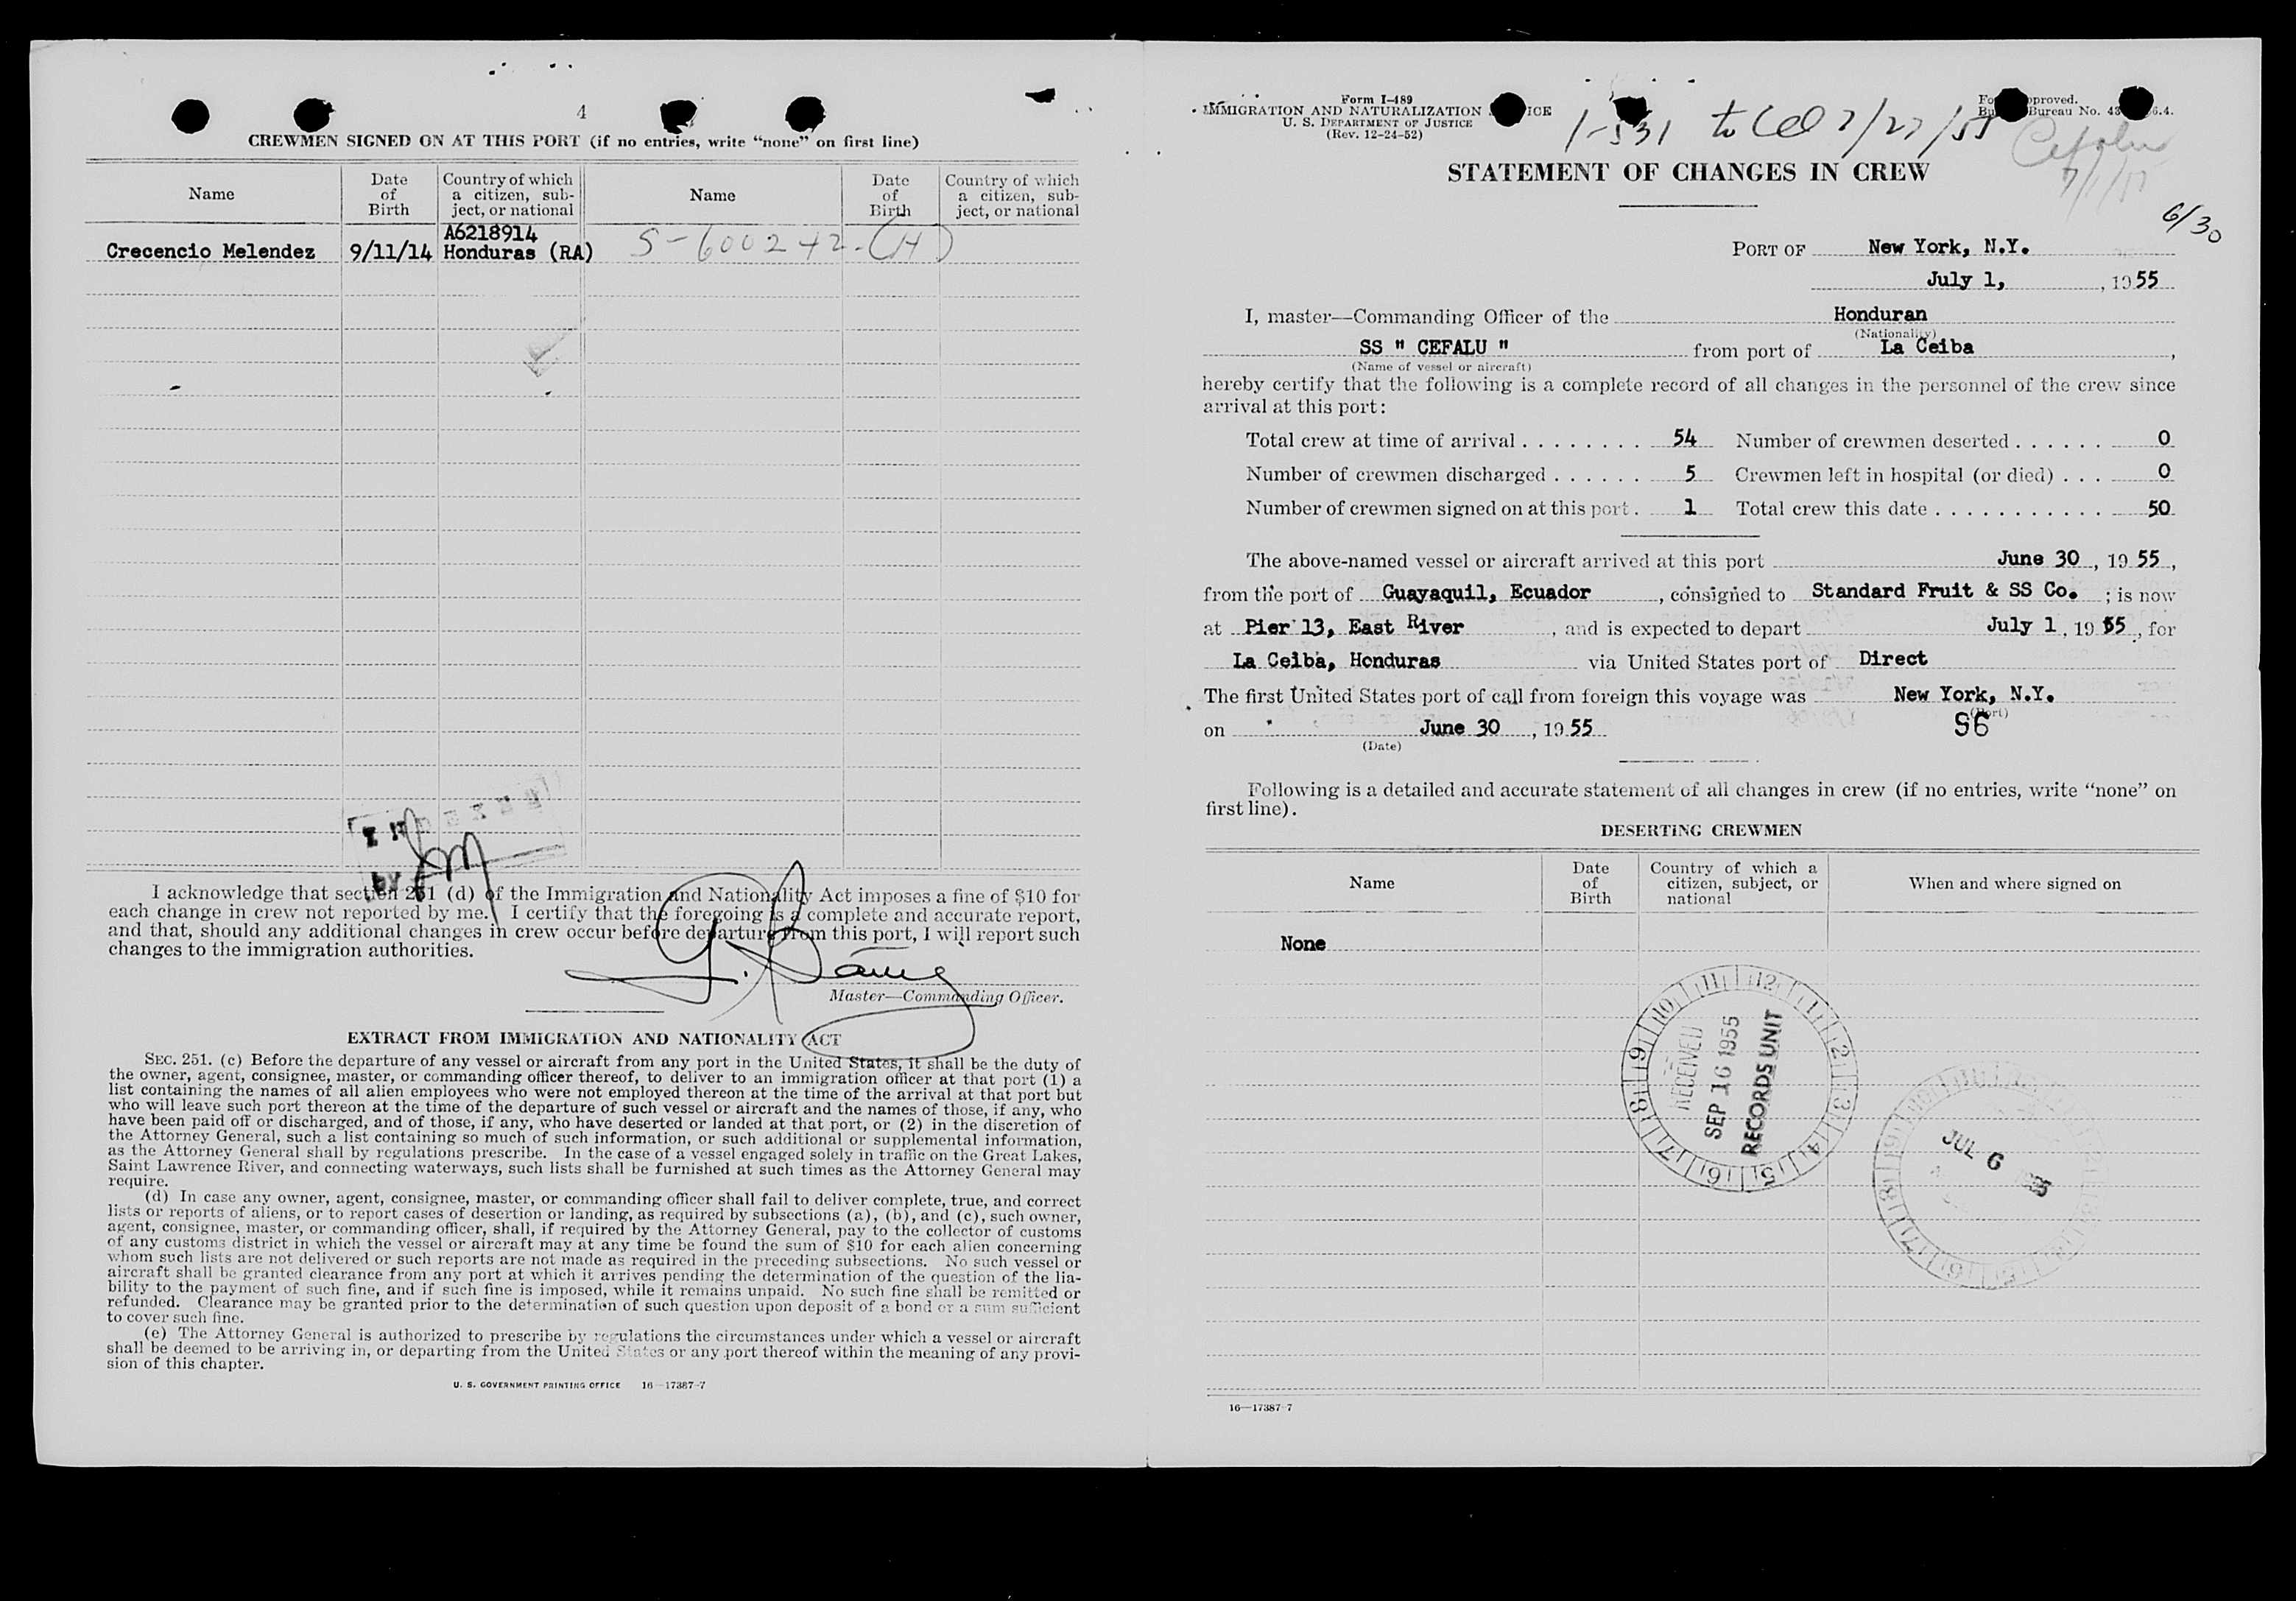 4
CREWMEN SIGNED ON AT THIS PORT (if no entries, write “none” on first line)
Name
Date of Birth
Country of which a citizen, subject, or national
Name
Date of Birth
Country of which a citizen, subject, or national
A6218914
Crecencio Melendez 9/11/14 Honduras (RA) S-600242-(H)
INDEXED
by
I acknowledge that section 251 (d) of the Immigration and Nationality Act imposes a fine of $10 for
each change in crew not reported by me. I certify that the foregoing is a complete and accurate report,
and that, should any additional changes in crew occur before departure from this port, I will report such
changes to the immigration authorities.
Master—Commanding Officer.
EXTRACT FROM IMMIGRATION AND NATIONALITY ACT
SEC. 251. (c) Before the departure of any vessel or aircraft from any port in the United States, it shall be the duty of
the owner, agent, consignee, master, or commanding officer thereof, to deliver to an immigration officer at that port (1) a
list containing the names of all alien employees who were not employed thereon at the time of the arrival at that port but
who will leave such port thereon at the time of the departure of such vessel or aircraft and the names of those, if any, who
have been paid off or discharged, and of those, if any, who have deserted or landed at that port, or (2) in the discretion of
the Attorney General, such a list containing so much of such information, or such additional or supplemental information,
as the Attorney General shall by regulations prescribe. In the case of a vessel engaged solely in traffic on the Great Lakes,
Saint Lawrence River, and connecting waterways, such lists shall be furnished at such times as the Attorney General may
require.
(d) In case any owner, agent, consignee, master, or commanding officer shall fail to deliver complete, true, and correct
lists or reports of aliens, or to report cases of desertion or landing, as required by subsections (a), (b), and (c), such owner,
agent, consignee, master, or commanding officer, shall, if required by the Attorney General, pay to the collector of customs
of any customs district in which the vessel or aircraft may at any time be found the sum of $10 for each alien concerning
whom such lists are not delivered or such reports are not made as required in the preceding subsections. No such vessel or
aircraft shall be granted clearance from any port at which it arrives pending the determination of the question of the lia-
bility to the payment of such fine, and if such fine is imposed, while it remains unpaid. No such fine shall be remitted or
refunded. Clearance may be granted prior to the determination of such question upon deposit of a bond or a sum sufficient
to cover such fine.
(e) The Attorney General is authorized to prescribe by regulations the circumstances under which a vessel or aircraft
shall be deemed to be arriving in, or departing from the United States or any port thereof within the meaning of any provi-
sion of this chapter.
U. S. GOVERNMENT PRINTING OFFICE 16—17387-7
Form I-489
IMMIGRATION AND NATURALIZATION
U. S. DEPARTMENT OF JUSTICE
(Rev. 12-24-52)
Bureau No.
Cefalu
7/1/55
6/30
STATEMENT OF CHANGES IN CREW
PORT OF New York, N.Y.
July 1, , 1955
I, master—Commanding Officer of the Honduran
(Nationality)
SS " CEFALU " from port of La Ceiba ,
(Name of vessel or aircraft)
hereby certify that the following is a complete record of all changes in the personnel of the crew since
arrival at this port:
Total crew at time of arrival . . . . . . . . 54 Number of crewmen deserted . . . . . . 0
Number of crewmen discharged . . . . . . 5 Crewmen left in hospital (or died) . . . 0
Number of crewmen signed on at this port . 1 Total crew this date . . . . . . . . . . . 50
The above-named vessel or aircraft arrived at this port June 30 , 19 55 ,
from the port of Guayaquil, Ecuador , consigned to Standard Fruit & SS Co. ; is now
at Pier 13, East River , and is expected to depart July 1 , 19 55 , for
La Ceiba, Honduras via United States port of Direct
The first United States port of call from foreign this voyage was New York, N.Y.
(Port)
on June 30 , 19 55 96
(Date)
Following is a detailed and accurate statement of all changes in crew (if no entries, write “none” on
first line).
DESERTING CREWMEN
Name
Date of Birth
Country of which a citizen, subject, or national
When and where signed on
None
RECEIVED
SEP 16 1955
RECORDS UNIT
JUL 6
16—17387-7